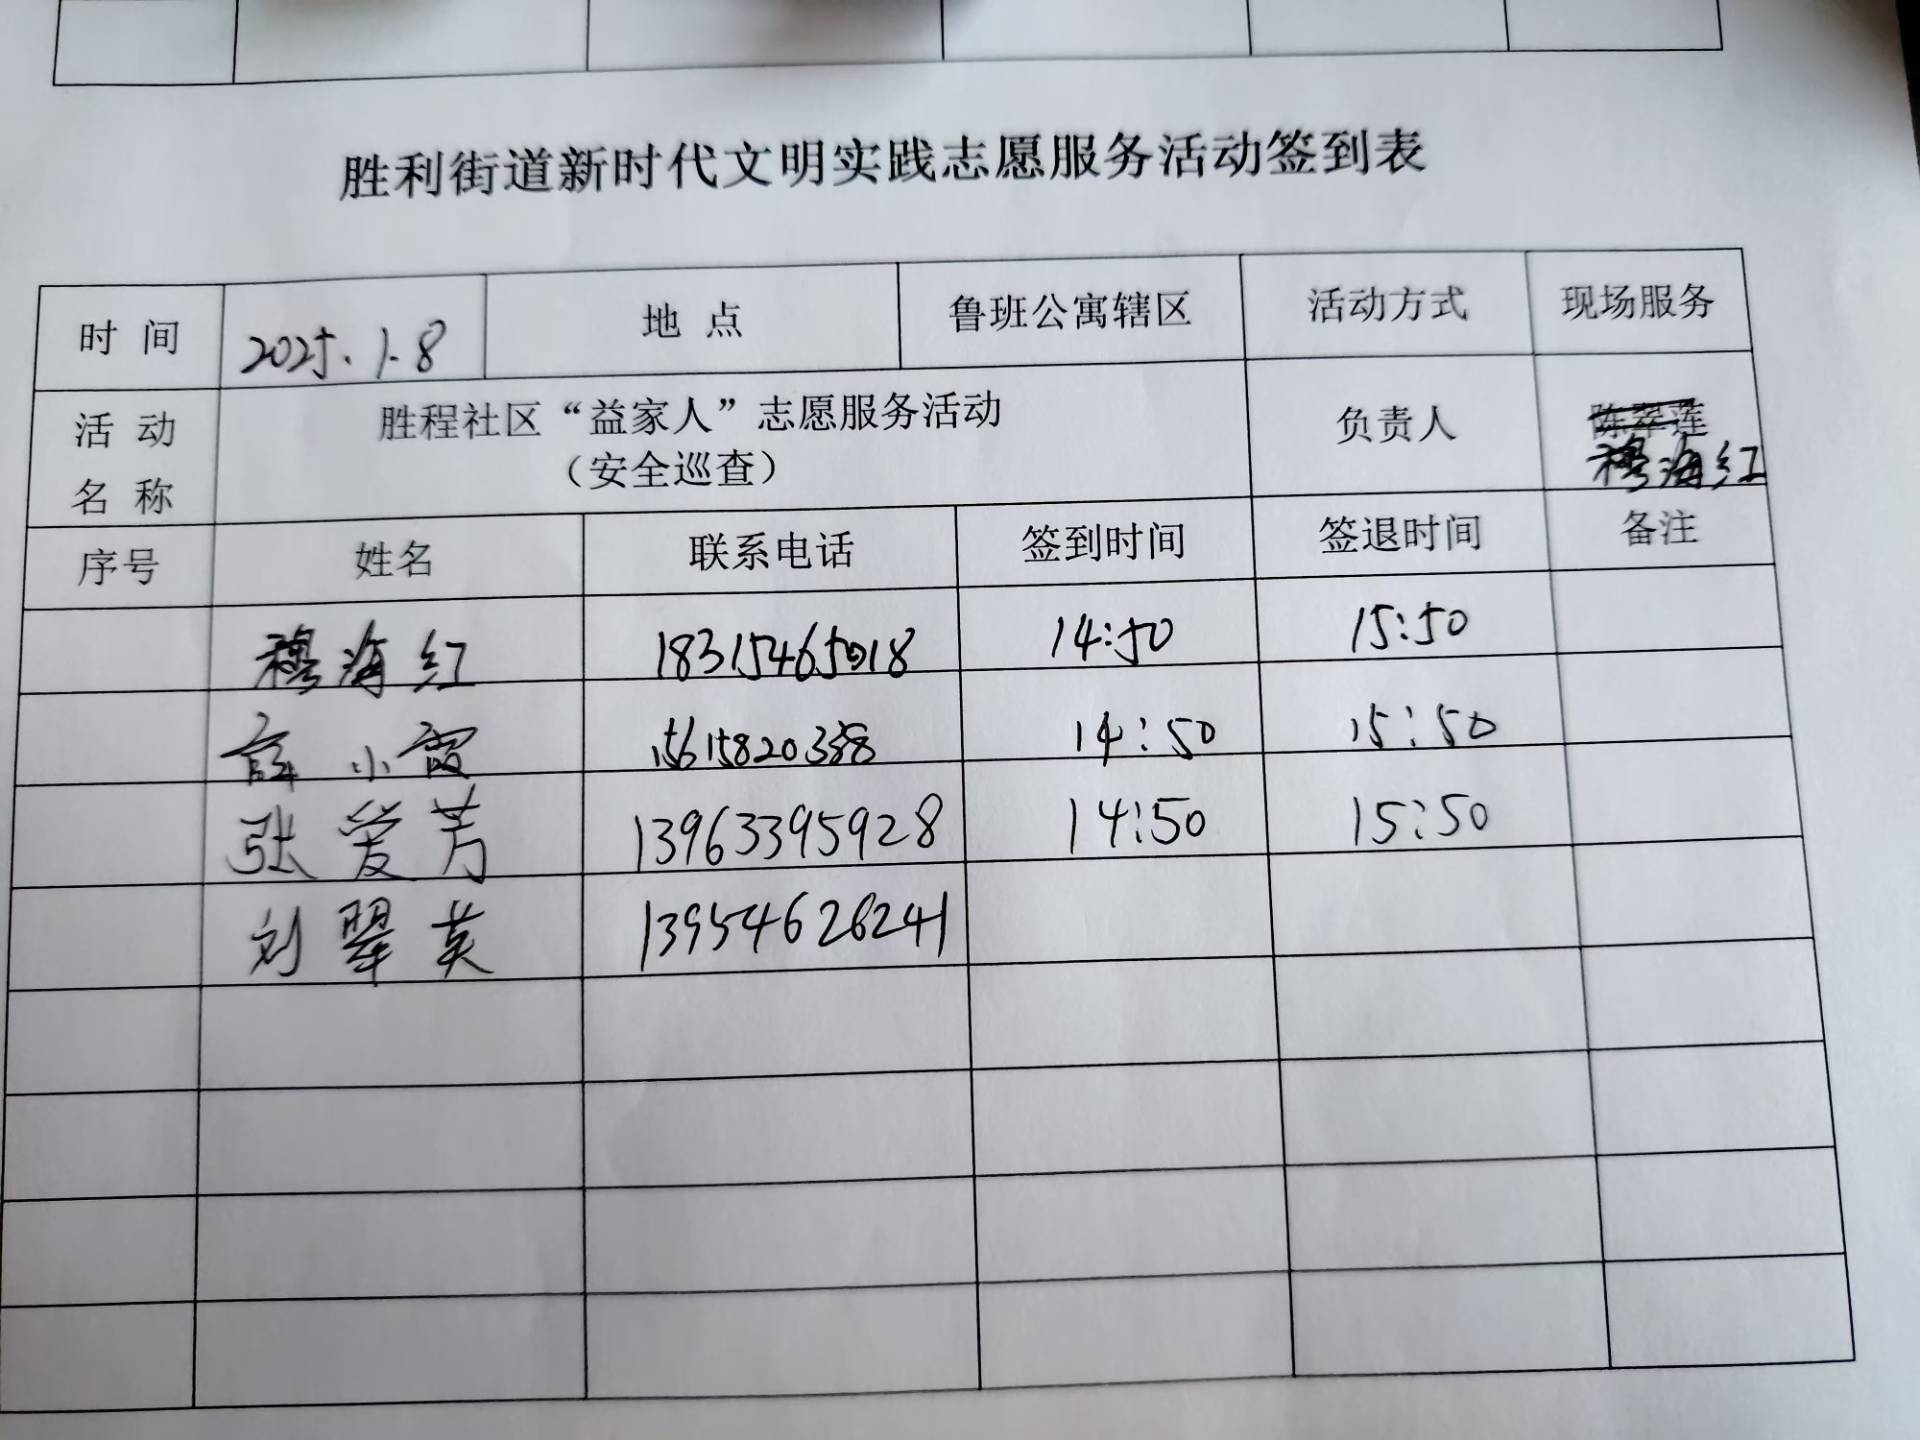 胜利街道新时代文明实践志愿服务活动签到表
时 间 2025.1.8 地 点 鲁班公寓辖区 活动方式 现场服务
活 动 名 称 胜程社区“益家人”志愿服务活动 负责人 陈翠莲
（安全巡查） 穆海红
序号 姓名 联系电话 签到时间 签退时间 备注
穆海红 18315465018 14:50 15:50
薛小霞 14:50 15:50
张爱芳 13963395928 14:50 15:50
刘翠英 13954626241